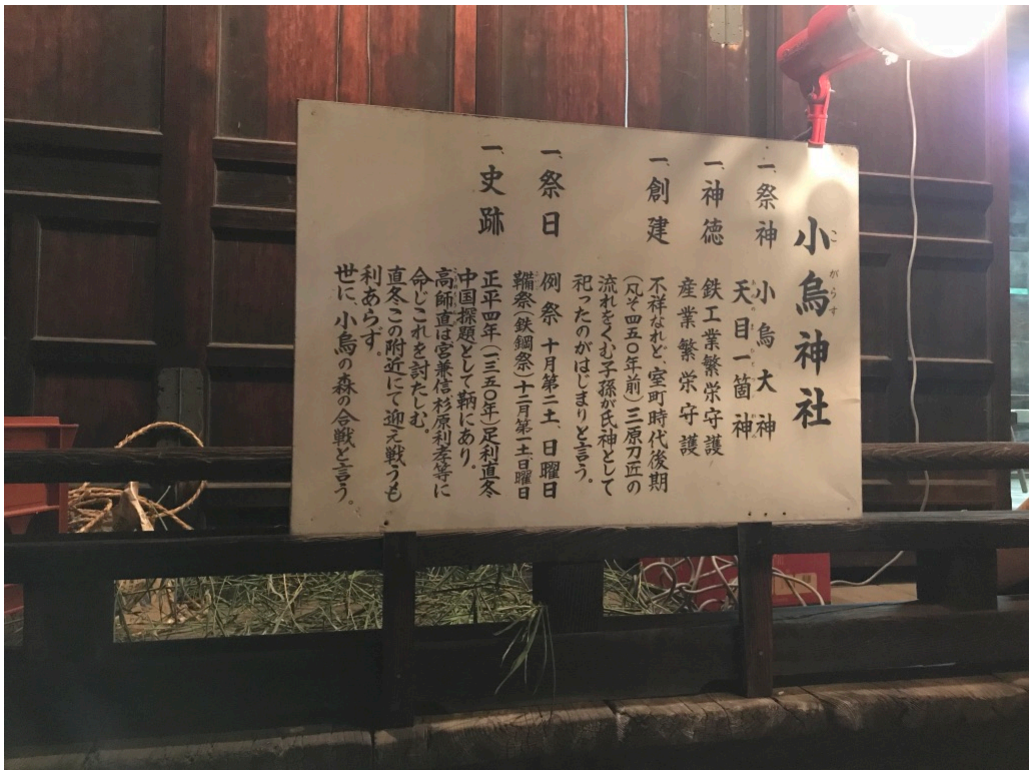 小烏神社
一、祭神 小烏大神
天目一箇神
一、神徳 鉄工業繁栄守護
産業繁栄守護
一、創建 不祥なれど、室町時代後期
(凡そ四五〇年前)三原刀匠の
流れをくむ子孫が氏神として
祀ったのがはじまりと言う。
一、祭日 例祭 十月第二土、日曜日
鞴祭(鉄鋼祭)十二月第一土、日曜日
一、史跡 正平四年(一三五〇年)足利直冬
中国探題として鞆にあり。
高師直は宮兼信杉原利孝等に
命じこれを討たしむ。
直冬この附近にて迎え戦うも
利あらず。
世に、小烏の森の合戦と言う。